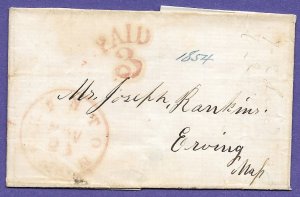 PAID
3
1854
Mr. Joseph Rankins.
Erving
Mass